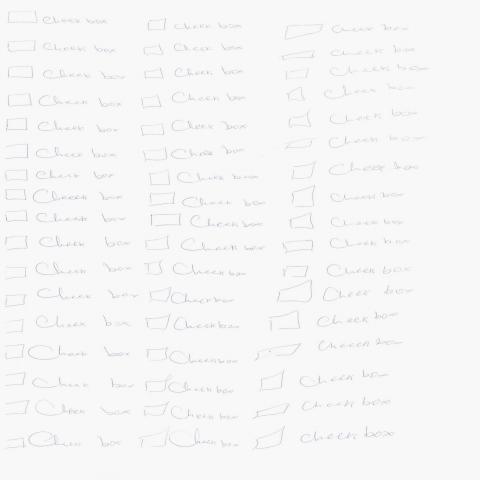 Check box
Check box
Check box
Check box
Check box
Check box
Check box
Check box
Check box
Check box
Check box
Check box
Check box
Check box
Check box
Check box
Check box
Check box
Check box
Check box
Check box
Check box
Check box
Check box
Check box
Check box
Check box
Check box
Check box
Check box
Check box
Check box
Check box
Check box
Check box
Check box
Check box
Check box
Check box
Check box
Check box
Check box
Check box
Check box
Check box
Check box
Check box
Check box
Check box
Check box
check box